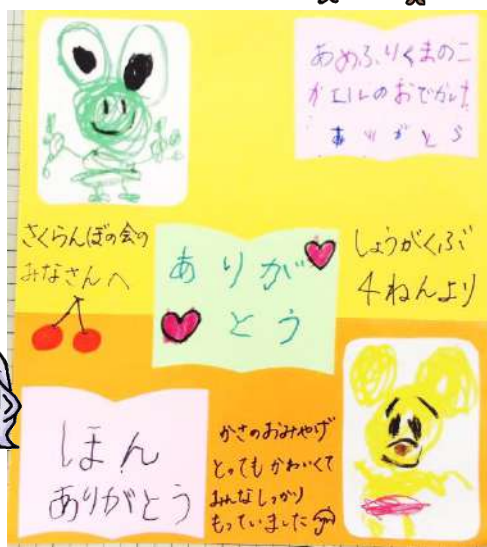 あめふりくまのこ
カエルのおでかけ
ありがとう
さくらんぼの会の
みなさんへ
ありが
とう
しょうがくぶ
4ねんより
ほん
ありがとう
かさのおみやげ
とってもかわいくて
みんなしっかり
もっていました